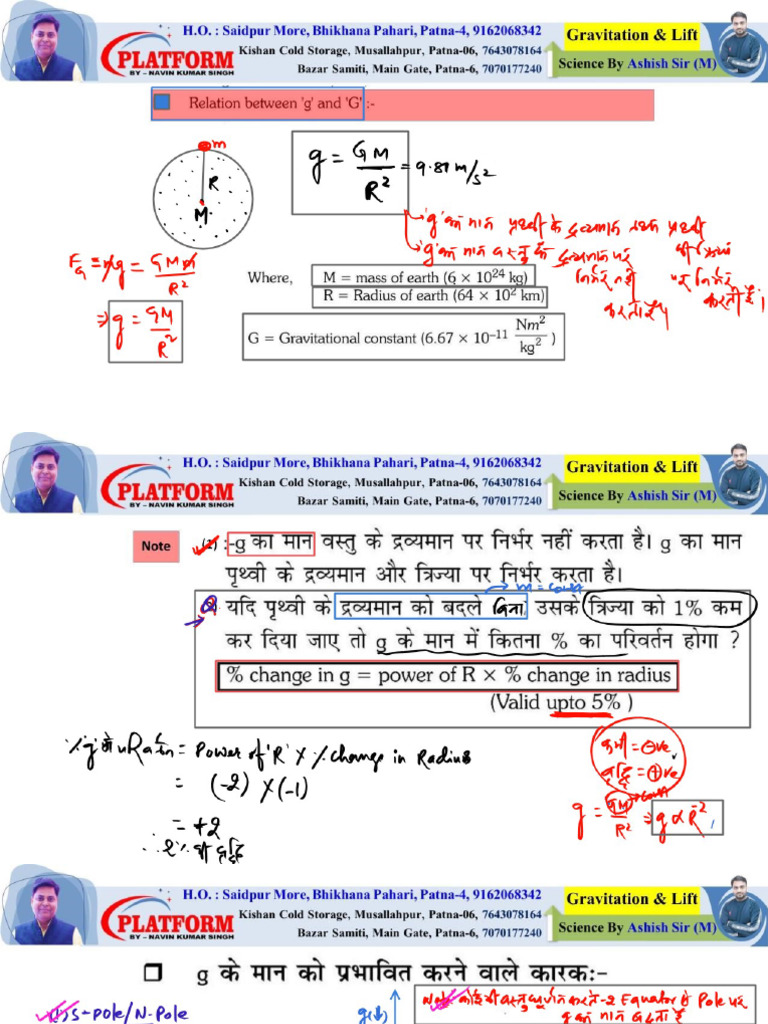 H.O. : Saidpur More, Bhikhana Pahari, Patna-4, 9162068342
Kishan Cold Storage, Musallahpur, Patna-06, 7643078164
Bazar Samiti, Main Gate, Patna-6, 7070177240
PLATFORM
BY – NAVIN KUMAR SINGH
Gravitation & Lift
Science By Ashish Sir (M)
Relation between 'g' and 'G' :-
m
R
M
g = GM/R² = 9.81 m/s²
'g' का मान पृथ्वी के द्रव्यमान
'g' का मान वस्तु के द्रव्यमान पर
निर्भर नहीं
करता है।
पर निर्भर
करती है।
= mg = GMm/R²
⇒ g = GM/R²
Where,
M = mass of earth (6 × 10²⁴ kg)
R = Radius of earth (64 × 10² km)
G = Gravitational constant (6.67 × 10⁻¹¹ Nm²/kg² )
H.O. : Saidpur More, Bhikhana Pahari, Patna-4, 9162068342
Kishan Cold Storage, Musallahpur, Patna-06, 7643078164
Bazar Samiti, Main Gate, Patna-6, 7070177240
PLATFORM
BY – NAVIN KUMAR SINGH
Gravitation & Lift
Science By Ashish Sir (M)
Note
(2) :-g का मान वस्तु के द्रव्यमान पर निर्भर नहीं करता है। g का मान
पृथ्वी के द्रव्यमान और त्रिज्या पर निर्भर करता है।
m = const
Q यदि पृथ्वी के द्रव्यमान को बदले बिना उसके त्रिज्या को 1% कम
कर दिया जाए तो g के मान में कितना % का परिवर्तन होगा ?
% change in g = power of R × % change in radius
(Valid upto 5% )
= Power of 'R' × % change in Radius
= (-2) × (-1)
= +2
∴ 2% की वृद्धि
कमी = -ve
वृद्धि = +ve
g = GM/R² ⇒ g ∝ R⁻²
H.O. : Saidpur More, Bhikhana Pahari, Patna-4, 9162068342
Kishan Cold Storage, Musallahpur, Patna-06, 7643078164
Bazar Samiti, Main Gate, Patna-6, 7070177240
PLATFORM
BY – NAVIN KUMAR SINGH
Gravitation & Lift
Science By Ashish Sir (M)
❒ g के मान को प्रभावित करने वाले कारक:-
S-Pole/N-Pole
Equator से Pole पर